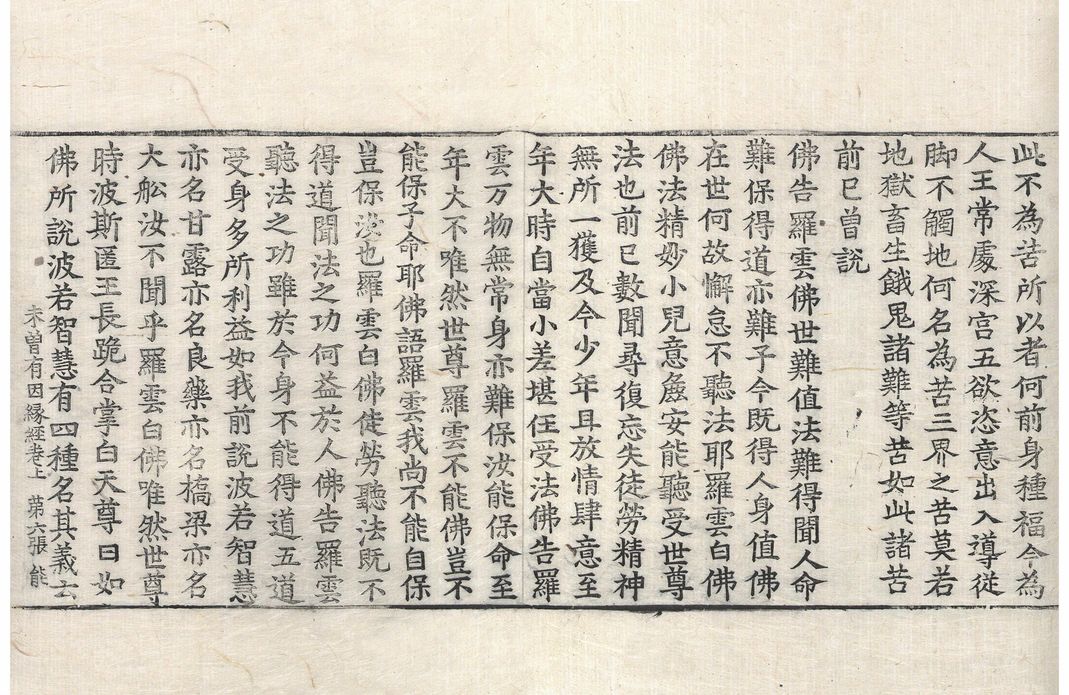 此不為苦所以者何前身種福今為
人王常處深宮五欲恣意出入導從
脚不觸地何名為苦三界之苦莫若
地獄畜生餓鬼諸難等苦如此諸苦
前已曾說
佛告羅雲佛世難值法難得聞人命
難保得道亦難子今既得人身值佛
在世何故懈怠不聽法耶羅雲白佛
佛法精妙小兒意麁安能聽受世尊
法也前已數聞尋復忘失徒勞精神
無所一獲及今少年且放情肆意至
年大時自當小差堪任受法佛告羅
雲万物無常身亦難保汝能保命至
年大不唯然世尊羅雲不能佛豈不
能保子命耶佛語羅雲我尚不能自保
豈保汝也羅雲白佛徒勞聽法既不
得道聞法之功何益於人佛告羅雲
聽法之功雖於今身不能得道五道
受身多所利益如我前說波若智慧
亦名甘露亦名良藥亦名橋梁亦名
大舩汝不聞乎羅雲白佛唯然世尊
時波斯匿王長跪合掌白天尊曰如
佛所說波若智慧有四種名其義云
未曾有因緣經卷上 第六張 能